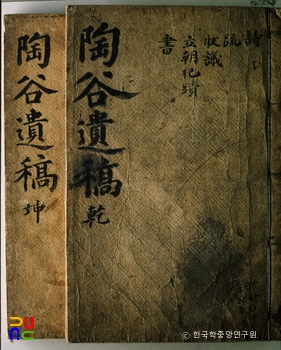 詩
疏
收議
立朝蹟
書
陶谷遺稿 乾
陶谷遺稿 坤
© 한국학중앙연구원